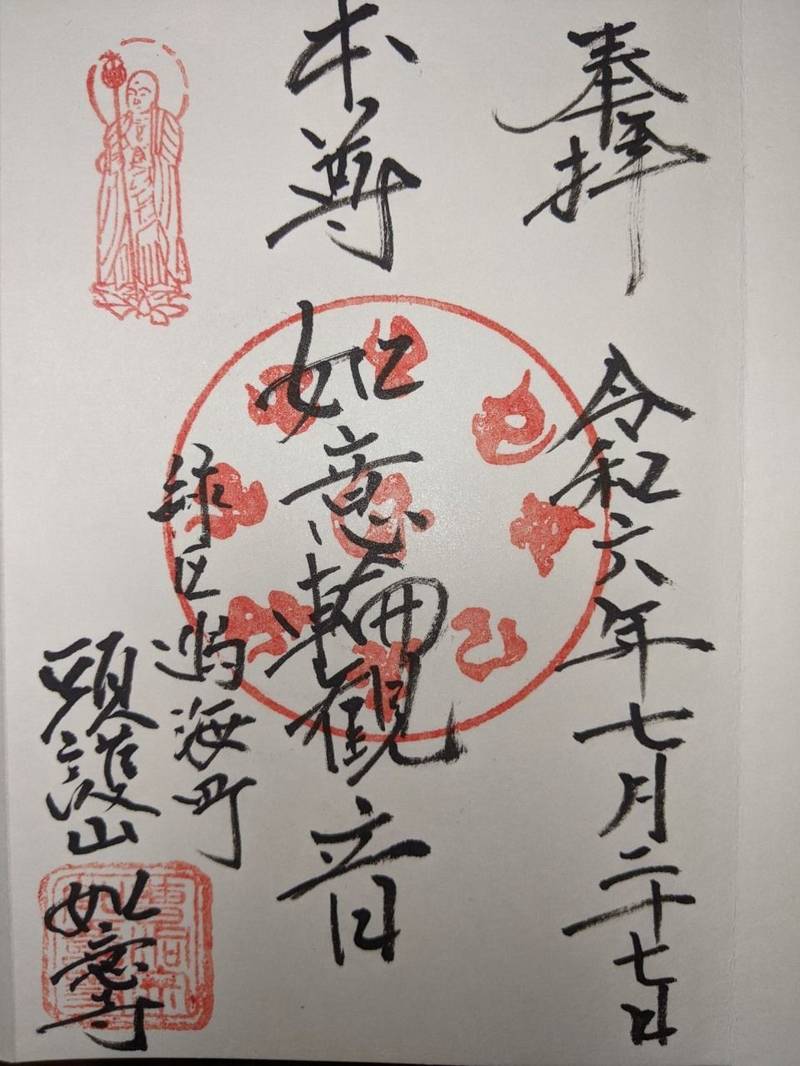 奉拝
令和六年七月二十七日
本尊
如意輪観音
緑区鳴海町
頭護山
如意寺